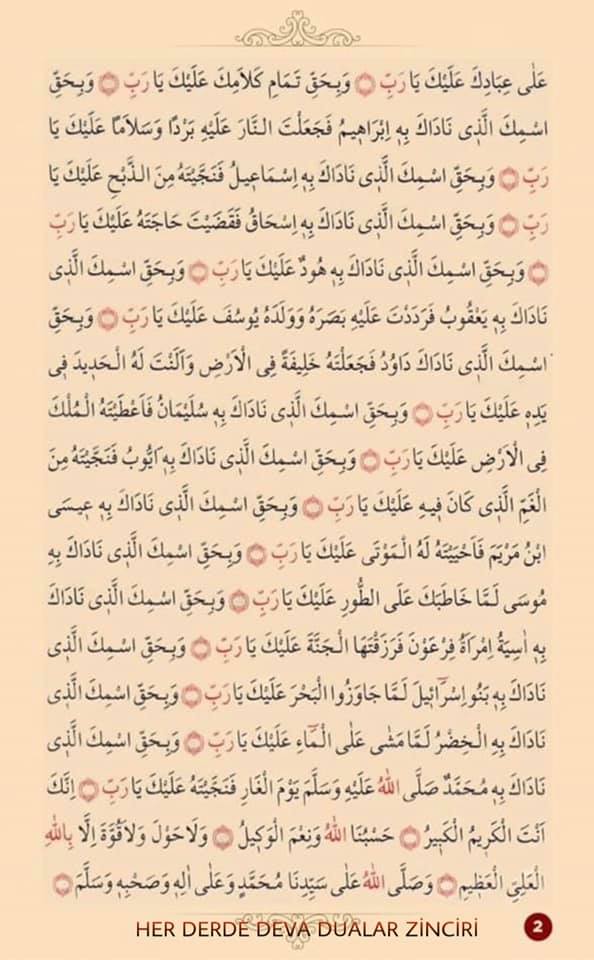 عَلٰى عِبَادِكَ عَلَيْكَ يَا رَبِّ ۞ وَبِحَقِّ تَمَامِ كَلَامِكَ عَلَيْكَ يَا رَبِّ ۞ وَبِحَقِّ
اسْمِكَ الَّذٖى نَادَاكَ بِهٖ اِبْرَاهٖيمُ فَجَعَلْتَ النَّارَ عَلَيْهِ بَرْدًا وَسَلَامًا عَلَيْكَ يَا
رَبِّ ۞ وَبِحَقِّ اسْمِكَ الَّذٖى نَادَاكَ بِهٖ اِسْمَاعٖيلُ فَنَجَّيْتَهُ مِنَ الذَّبْحِ عَلَيْكَ يَا
رَبِّ ۞ وَبِحَقِّ اسْمِكَ الَّذٖى نَادَاكَ بِهٖ اِسْحَاقُ فَقَضَيْتَ حَاجَتَهُ عَلَيْكَ يَا رَبِّ
۞ وَبِحَقِّ اسْمِكَ الَّذٖى نَادَاكَ بِهٖ هُودٌ عَلَيْكَ يَا رَبِّ ۞ وَبِحَقِّ اسْمِكَ الَّذٖى
نَادَاكَ بِهٖ يَعْقُوبُ فَرَدَدْتَ عَلَيْهِ بَصَرَهُ وَوَلَدَهُ يُوسُفَ عَلَيْكَ يَا رَبِّ ۞ وَبِحَقِّ
اسْمِكَ الَّذٖى نَادَاكَ دَاوُدُ فَجَعَلْتَهُ خَلٖيفَةً فِى الْاَرْضِ وَاَلَنْتَ لَهُ الْحَدٖيدَ فٖى
يَدِهٖ عَلَيْكَ يَا رَبِّ ۞ وَبِحَقِّ اسْمِكَ الَّذٖى نَادَاكَ بِهٖ سُلَيْمَانُ فَاَعْطَيْتَهُ الْمُلْكَ
فِى الْاَرْضِ عَلَيْكَ يَا رَبِّ ۞ وَبِحَقِّ اسْمِكَ الَّذٖى نَادَاكَ بِهٖ اَيُّوبُ فَنَجَّيْتَهُ مِنَ
الْغَمِّ الَّذٖى كَانَ فٖيهِ عَلَيْكَ يَا رَبِّ ۞ وَبِحَقِّ اسْمِكَ الَّذٖى نَادَاكَ بِهٖ عٖيسَى
ابْنُ مَرْيَمَ فَاَحْيَيْتَهُ لَهُ الْمَوْتَى عَلَيْكَ يَا رَبِّ ۞ وَبِحَقِّ اسْمِكَ الَّذٖى نَادَاكَ بِهٖ
مُوسَى لَمَّا خَاطَبَكَ عَلَى الطُّورِ عَلَيْكَ يَا رَبِّ ۞ وَبِحَقِّ اسْمِكَ الَّذٖى نَادَاكَ
بِهٖ اٰسِيَةُ امْرَاَةُ فِرْعَوْنَ فَرَزَقْتَهَا الْجَنَّةَ عَلَيْكَ يَا رَبِّ ۞ وَبِحَقِّ اسْمِكَ الَّذٖى
نَادَاكَ بِهٖ بَنُو اِسْرَٓائٖيلَ لَمَّا جَاوَزُوا الْبَحْرَ عَلَيْكَ يَا رَبِّ ۞ وَبِحَقِّ اسْمِكَ الَّذٖى
نَادَاكَ بِهِ الْخِضْرُ لَمَّا مَشٰى عَلَى الْمَٓاءِ عَلَيْكَ يَا رَبِّ ۞ وَبِحَقِّ اسْمِكَ الَّذٖى
نَادَاكَ بِهٖ مُحَمَّدٌ صَلَّى اللهُ عَلَيْهِ وَسَلَّمَ يَوْمَ الْغَارِ فَنَجَّيْتَهُ عَلَيْكَ يَا رَبِّ ۞ اِنَّكَ
اَنْتَ الْكَرٖيمُ الْكَبٖيرُ ۞ حَسْبُنَا اللهُ وَنِعْمَ الْوَكٖيلُ ۞ وَلَا حَوْلَ وَلَا قُوَّةَ اِلَّا بِاللهِ
الْعَلِىِّ الْعَظٖيمِ ۞ وَصَلَّى اللهُ عَلٰى سَيِّدِنَا مُحَمَّدٍ وَعَلٰى اٰلِهٖ وَصَحْبِهٖ وَسَلَّمَ ۞
HER DERDE DEVA DUALAR ZİNCİRİ 2